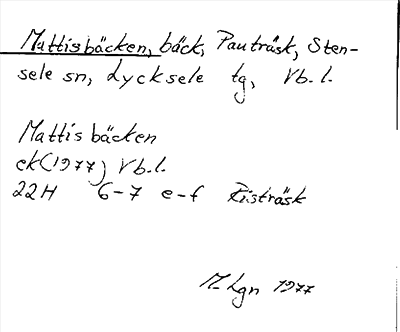 Mattisbäcken, bäck, Pauträsk, Sten-
sele sn, Lycksele tg, Vb. l.
Mattisbäcken
ek (1977) Vb. l.
22H 6-7 e-f Risträsk
M. Lgn 1977